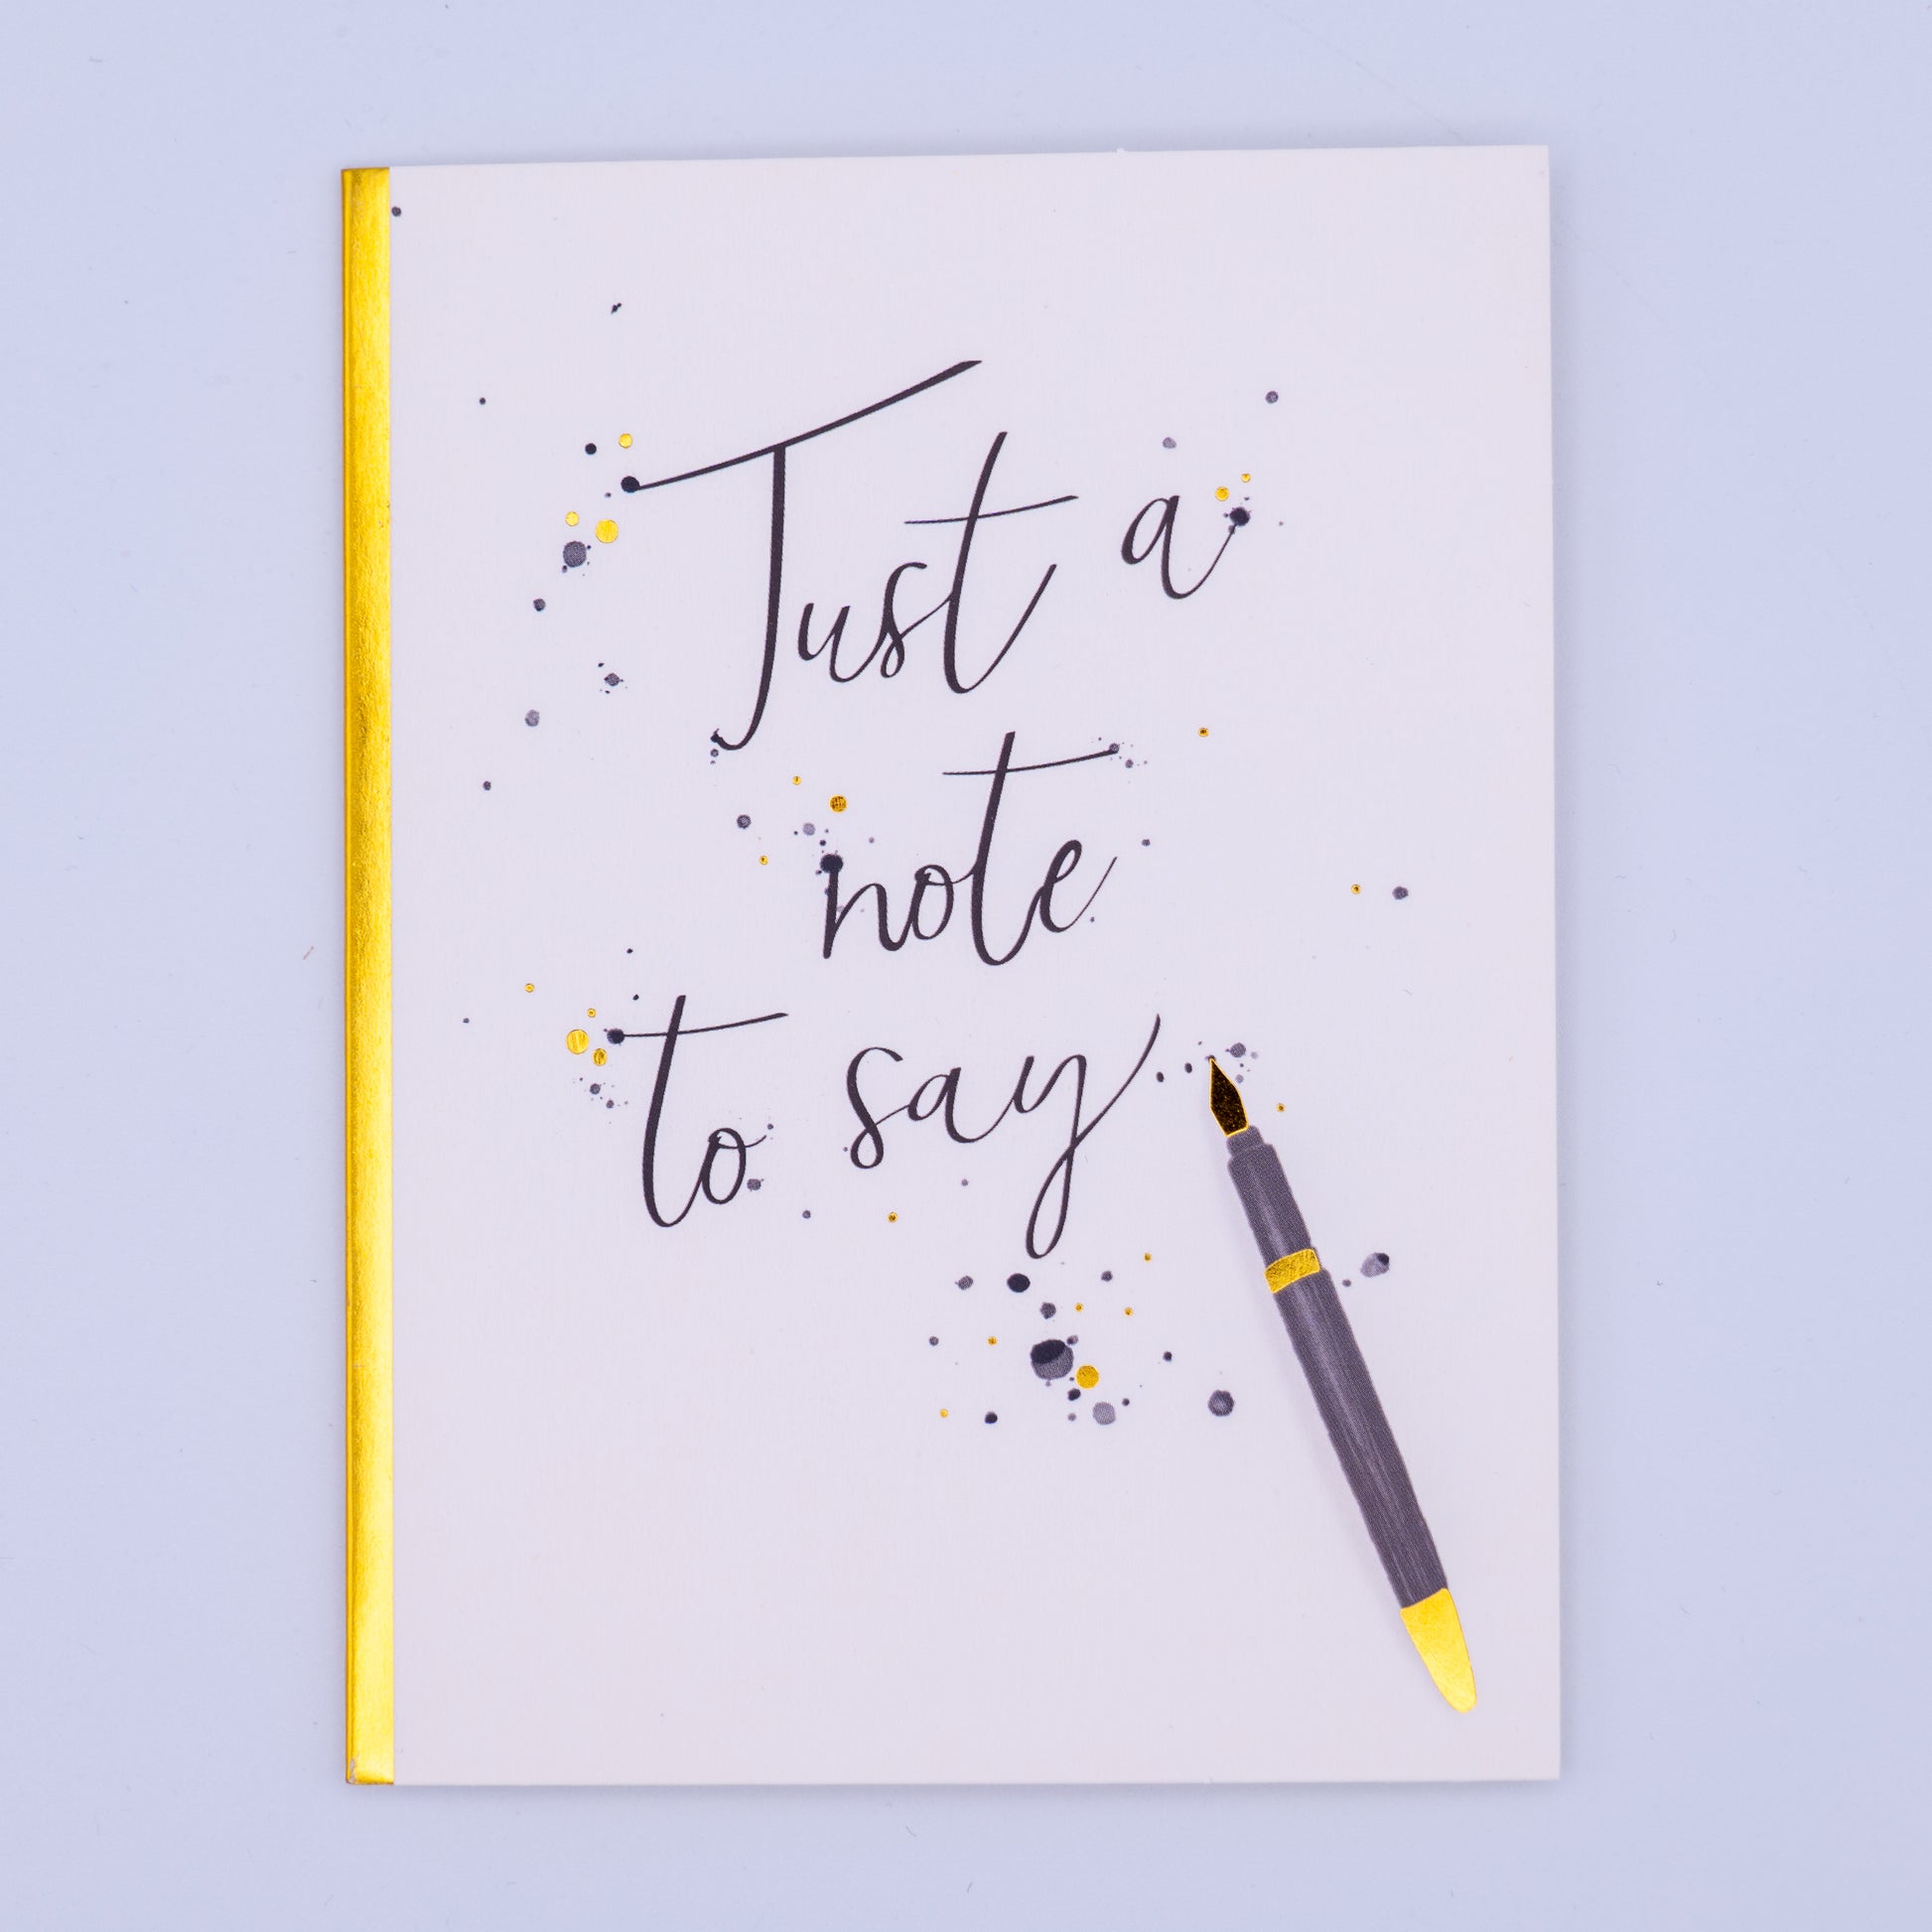 Just a
note
to say...